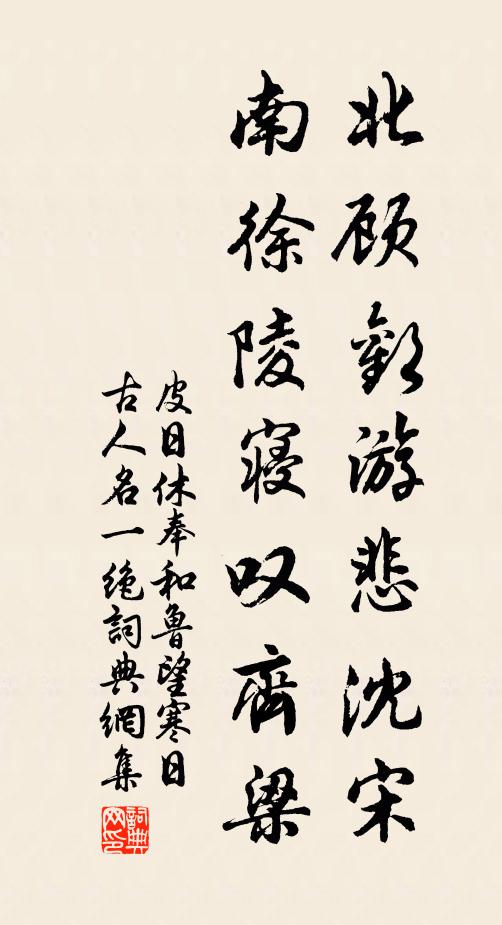 北顾欢游悲沈宋
南徐陵寝叹齊梁
皮日休奉和魯望寒日
古人名一绝詞典網集
詞典网印